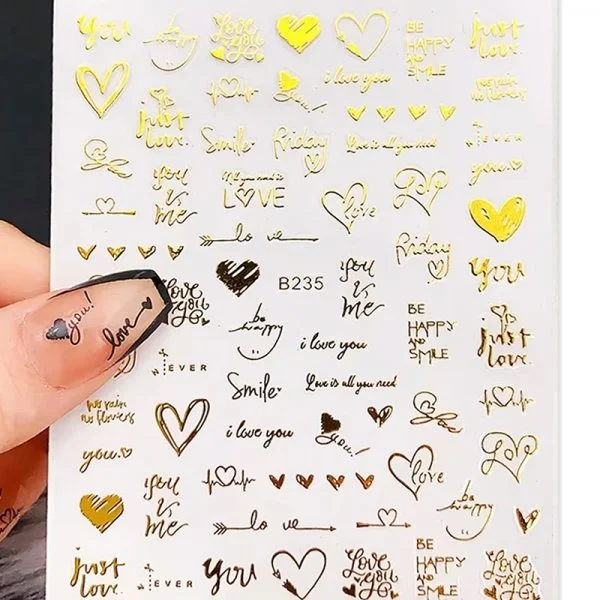 You
be
happy
Love
you
BE
HAPPY
AND
SMILE
just
love.
i love you
you!
no rain
no flowers
just
love.
Smile
Friday
Love is all you need
EVER
you
is
me
All you need is
LOVE
love
LOVE
you
lo ve
Friday
You
Love
you
B235
you
is
me
you!
love
be
happy
i love you
BE
HAPPY
AND
SMILE
just
love.
EVER
Smile
Love is all you need
no rain
no flowers
i love you
you!
you
love
LOVE
you
is
me
be
happy
lo ve
just
love.
EVER
You
Love
you
BE
HAPPY
AND
SMILE
Love
you